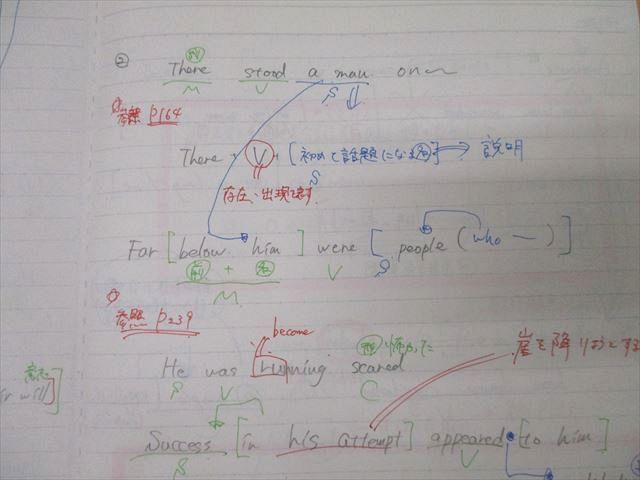 ②
副
There stood a man on
M V S
参照 P164
There V [初めて話題になる名] ⇒ 説明
S
存在、出現を表す
Far [below him] were [people (who ―)]
前 + 名 V S
M
参照 P239
become
He was running scared
S V C
崖を降りようとする
Success [in his attempt] appeared [to him]
S V